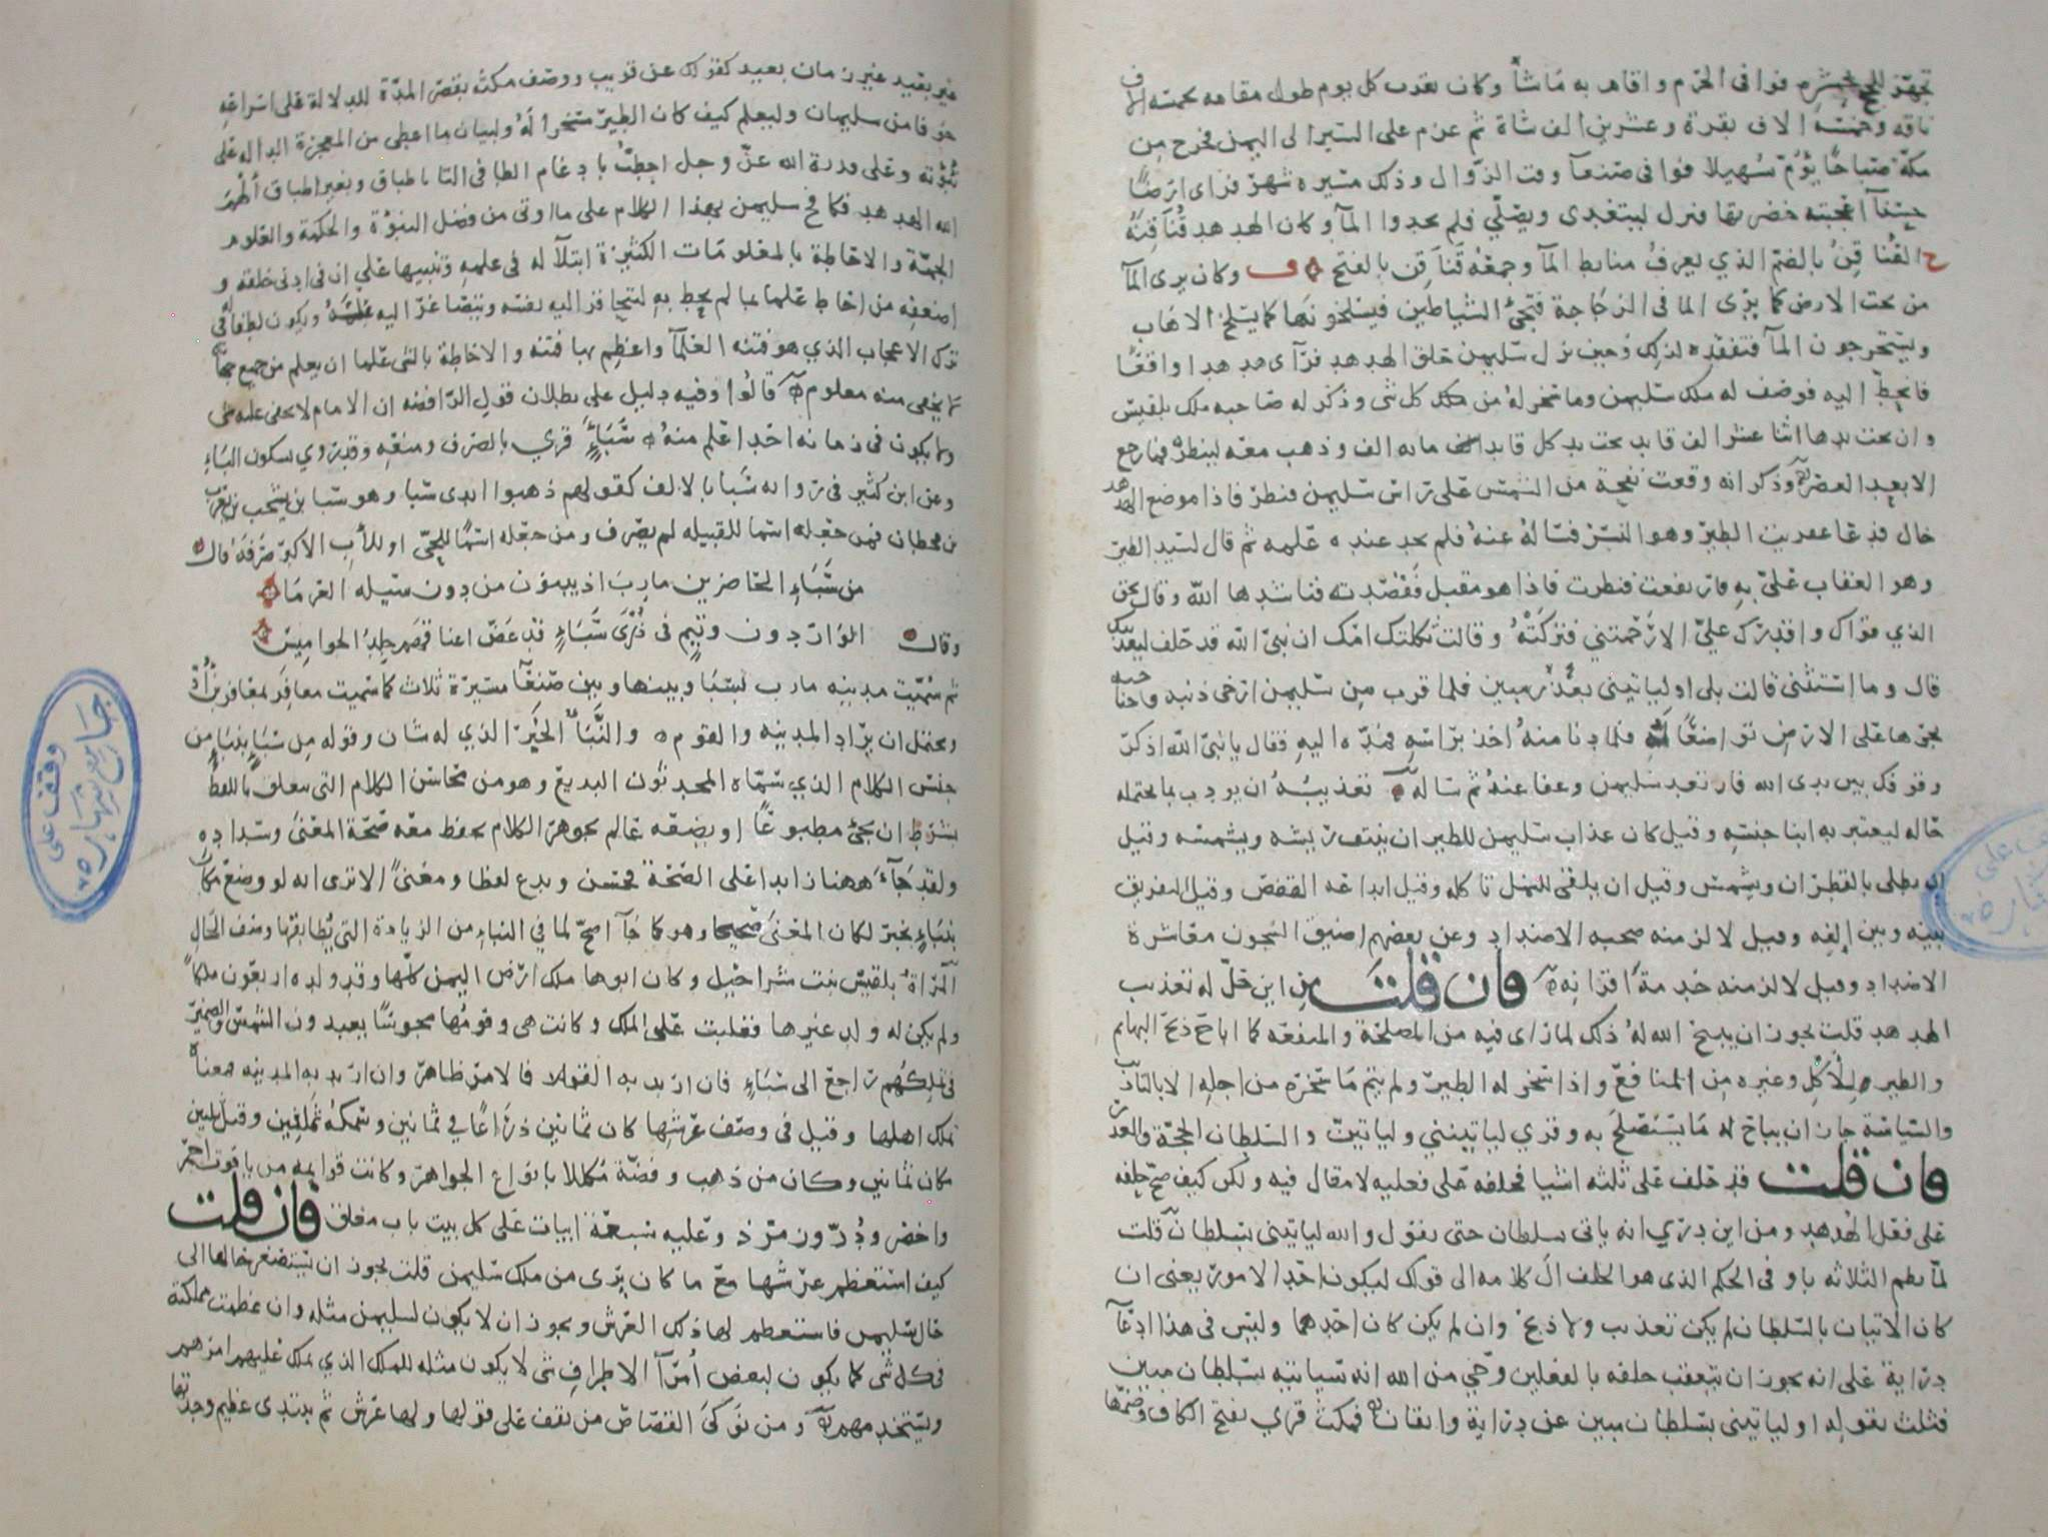 تجهز للحج بحشره فوافى الحرم واقام به ما شاء وكان يقرب كل يوم طول مقامه بخمسه الاف
ناقه وخمسة الاف بقرة وعشرين الف شاة ثم عزم على السير الى اليمن فخرج من
مكة صباحا يؤم سهيلا فوافى صنعآ وقت الزوال وذلك مسيره شهر فراى ارضا
حسنآ اعجبته خضرتها فنزل ليتغدى ويصلي فلم يجدوا المآ وكان الهدهد قناقنه
ح القناقن بالضم الذي يعرف منابط المآ وجمعه قناقن بالفتح ف وكان يرى المآ
من تحت الارض كما يرى الما في الزجاجة فتجئ الشياطين فيسلخونها كما يسلخ الاهاب
ويستخرجون المآ فتفقده لذلك وحين نزل سليمن حلق الهدهد فرآى هدهدا واقعا
فانحط اليه فوصف له ملك سليمن وما سخر له من كل شى وذكر له صاحبه ملك بلقيس
وان تحت يدها اثنا عشر الف قايد تحت يد كل قايد مايه الف وذهب معه لينظر فما رجع
الا بعد العصر وذكر انه وقعت نفحة من الشمس على راس سليمن فنظر فاذا موضع الهدهد
خال فدعا عفريت الطير وهو النسر فساله عنه فلم يجد عنده علمه ثم قال لسيد الطير
وهو العقاب علي به فارتفعت فنظرت فاذا هو مقبل فقصدته فناشدها الله وقال بحق
الذي قواك واقدرك علي الا رحمتني فتركته وقالت ثكلتك امك ان نبي الله قد حلف ليعذبنك
قال وما استثنى قالت بلى او لياتيني بعذر مبين فلما قرب من سليمن ارخى ذنبه وجناحيه
يجرها على الارض تواضعا له فلما دنا منه اخذ براسه فمده اليه فقال يا نبي الله اذكر
وقوفك بين يدى الله فارتعد سليمن وعفا عنه ثم ساله تعذيبه ان يودب بما يحتمله
حاله ليعتبر به ابنا جنسه وقيل كان عذاب سليمن للطير ان ينتف ريشه ويشمسه وقيل
ان يطلى بالقطران ويشمس وقيل ان يلقى للنمل تاكله وقيل ايداعه القفص وقيل التفريق
بينه وبين إلفه وقيل لالزمنه صحبه الاضداد وعن بعضهم اضيق السجون معاشرة
الاضداد وقيل لالزمنه خدمة اقرانه فان قلت من اين حل له تعذيب
الهدهد قلت يجوز ان يبيح الله له ذلك لما راى فيه من المصلحة والمنفعه كما اباح ذبح البهايم
والطير للاكل وغيره من المنافع واذا سخر له الطير ولم يتم ما سخر من اجله الا بالتاديب
والسياسة جاز ان يباح له ما يستصلح به وقري لياتينني ولياتين والسلطان الحجة والعذر
فان قلت قد حلف على ثلثه اشيا فحلفه على فعليه لا مقال فيه ولكن كيف صح حلفه
على فعل الهدهد ومن اين درى انه ياتى بسلطان حتى يقول والله لياتيني بسلطان قلت
لما نظم الثلاثه باو في الحكم الذى هو الحلف آل كلامه الى قولك ليكونن احد الامور يعنى ان
كان الاتيان بالسلطان لم يكن تعذيب ولا ذبح وان لم يكن كان احدهما وليس في هذا ادعآ
دراية على انه يجوز ان يتعقب حلفه بالفعلين وحي من الله انه سياتيه بسلطان مبين
فثلث بقوله او لياتينى بسلطان مبين عن دراية وايقان فمكث قري بفتح الكاف وضمها
غير بعيد غير زمان بعيد كقولك عن قريب ووصف مكثه بقصر المدة للدلالة على اسراعه
خوفا من سليمان وليعلم كيف كان الطير مسخرا له ولبيان ما اعطى من المعجزة الداله على
نبوته وعلى قدرة الله عز وجل احطت بادغام الطا في التا باطباق وبغير اطباق ألهم
الله الهدهد فكافح سليمن بهذا الكلام على ما اوتى من فضل النبوة والحكمة والعلوم
الجمة والاحاطة بالمعلومات الكثيرة ابتلآ له في علمه وتنبيها على ان في ادنى خلقه و
اضعفه من احاط علما بما لم يحط به لتتحاقر اليه نفسه ويتصاغر اليه علمه ويكون لطفا له في
ترك الاعجاب الذي هو فتنه العلمآ واعظم بها فتنه والاحاطة بالشى علما ان يعلم من جميع جهاته
لا يخفى منه معلوم قالوا وفيه دليل على بطلان قول الرافضه ان الامام لا يخفى عليه شى
ولا يكون في زمانه احد اعلم منه سبإ قري بالصرف ومنعه وقد روي بسكون الباء
وعن ابن كثير في روايه سبا بالالف كقولهم ذهبوا ايدى سبا وهو سبا بن يشجب بن يعرب
بن قحطان فمن جعله اسما للقبيله لم يصرف ومن جعله اسما للحي او للأب الاكبر صرفه قال
من سباء الحاضرين مارب اذ يبنون من دون سيله العرما
وقال الواردون وتيم في ذرى سباء قد عض اعناقهم جلد الجواميس
ثم سميت مدينه مارب بسبا وبينها وبين صنعآ مسيرة ثلاث كما سميت معافر بمعافر بن أد
ويحتمل ان يراد المدينه والقوم والنبأ الخبر الذي له شان وقوله من سبإ بنبإ من
جنس الكلام الذي سماه المحدثون البديع وهو من محاسن الكلام التى يتعلق باللفظ
بشرط ان يجئ مطبوعا او يصنعه عالم بجوهر الكلام يحفظ معه صحة المعنى وسداده
ولقد جآء ههنا زايدا على الصحة فحسن وبدع لفظا ومعنى الا ترى انه لو وضع مكان
بنباء بخبر لكان المعنى صحيحا وهو كما جآ اصح لما في النباء من الزيادة التى يطابقها وصف الحال
المراة بلقيس بنت شراحيل وكان ابوها ملك ارض اليمن كلها وقد ولده اربعون ملكا
ولم يكن له ولد غيرها فغلبت على الملك وكانت هى وقومها مجوسا يعبدون الشمس والضمير
في تملكهم راجع الى سباء فان اريد به القوم فالامر ظاهر وان اريد به المدينه فمعناه
تملك اهلها وقيل في وصف عرشها كان ثمانين ذراعا في ثمانين وسمكه ثمانين وقيل ثلثين
مكان ثمانين وكان من ذهب وفضة مكللا بانواع الجواهر وكانت قوايمه من ياقوت احمر
واخضر ودر وزمرذ وعليه سبعة ابيات على كل بيت باب مغلق فان قلت
كيف استعظم عرشها مع ما كان يرى من ملك سليمن قلت يجوز ان يستصغر حالها الى
حال سليمن فاستعظم لها ذلك العرش ويجوز ان لا يكون لسليمن مثله وان عظمت مملكته
في كل شى كما يكون لبعض أمرآ الاطراف شى لا يكون مثله للملك الذي يملك عليهم امرهم
ويستخدمهم ومن نوكى القصاص من يقف على قوله ولها عرش ثم يبتدى عظيم وجدتها
وقف على
جامع شهاره